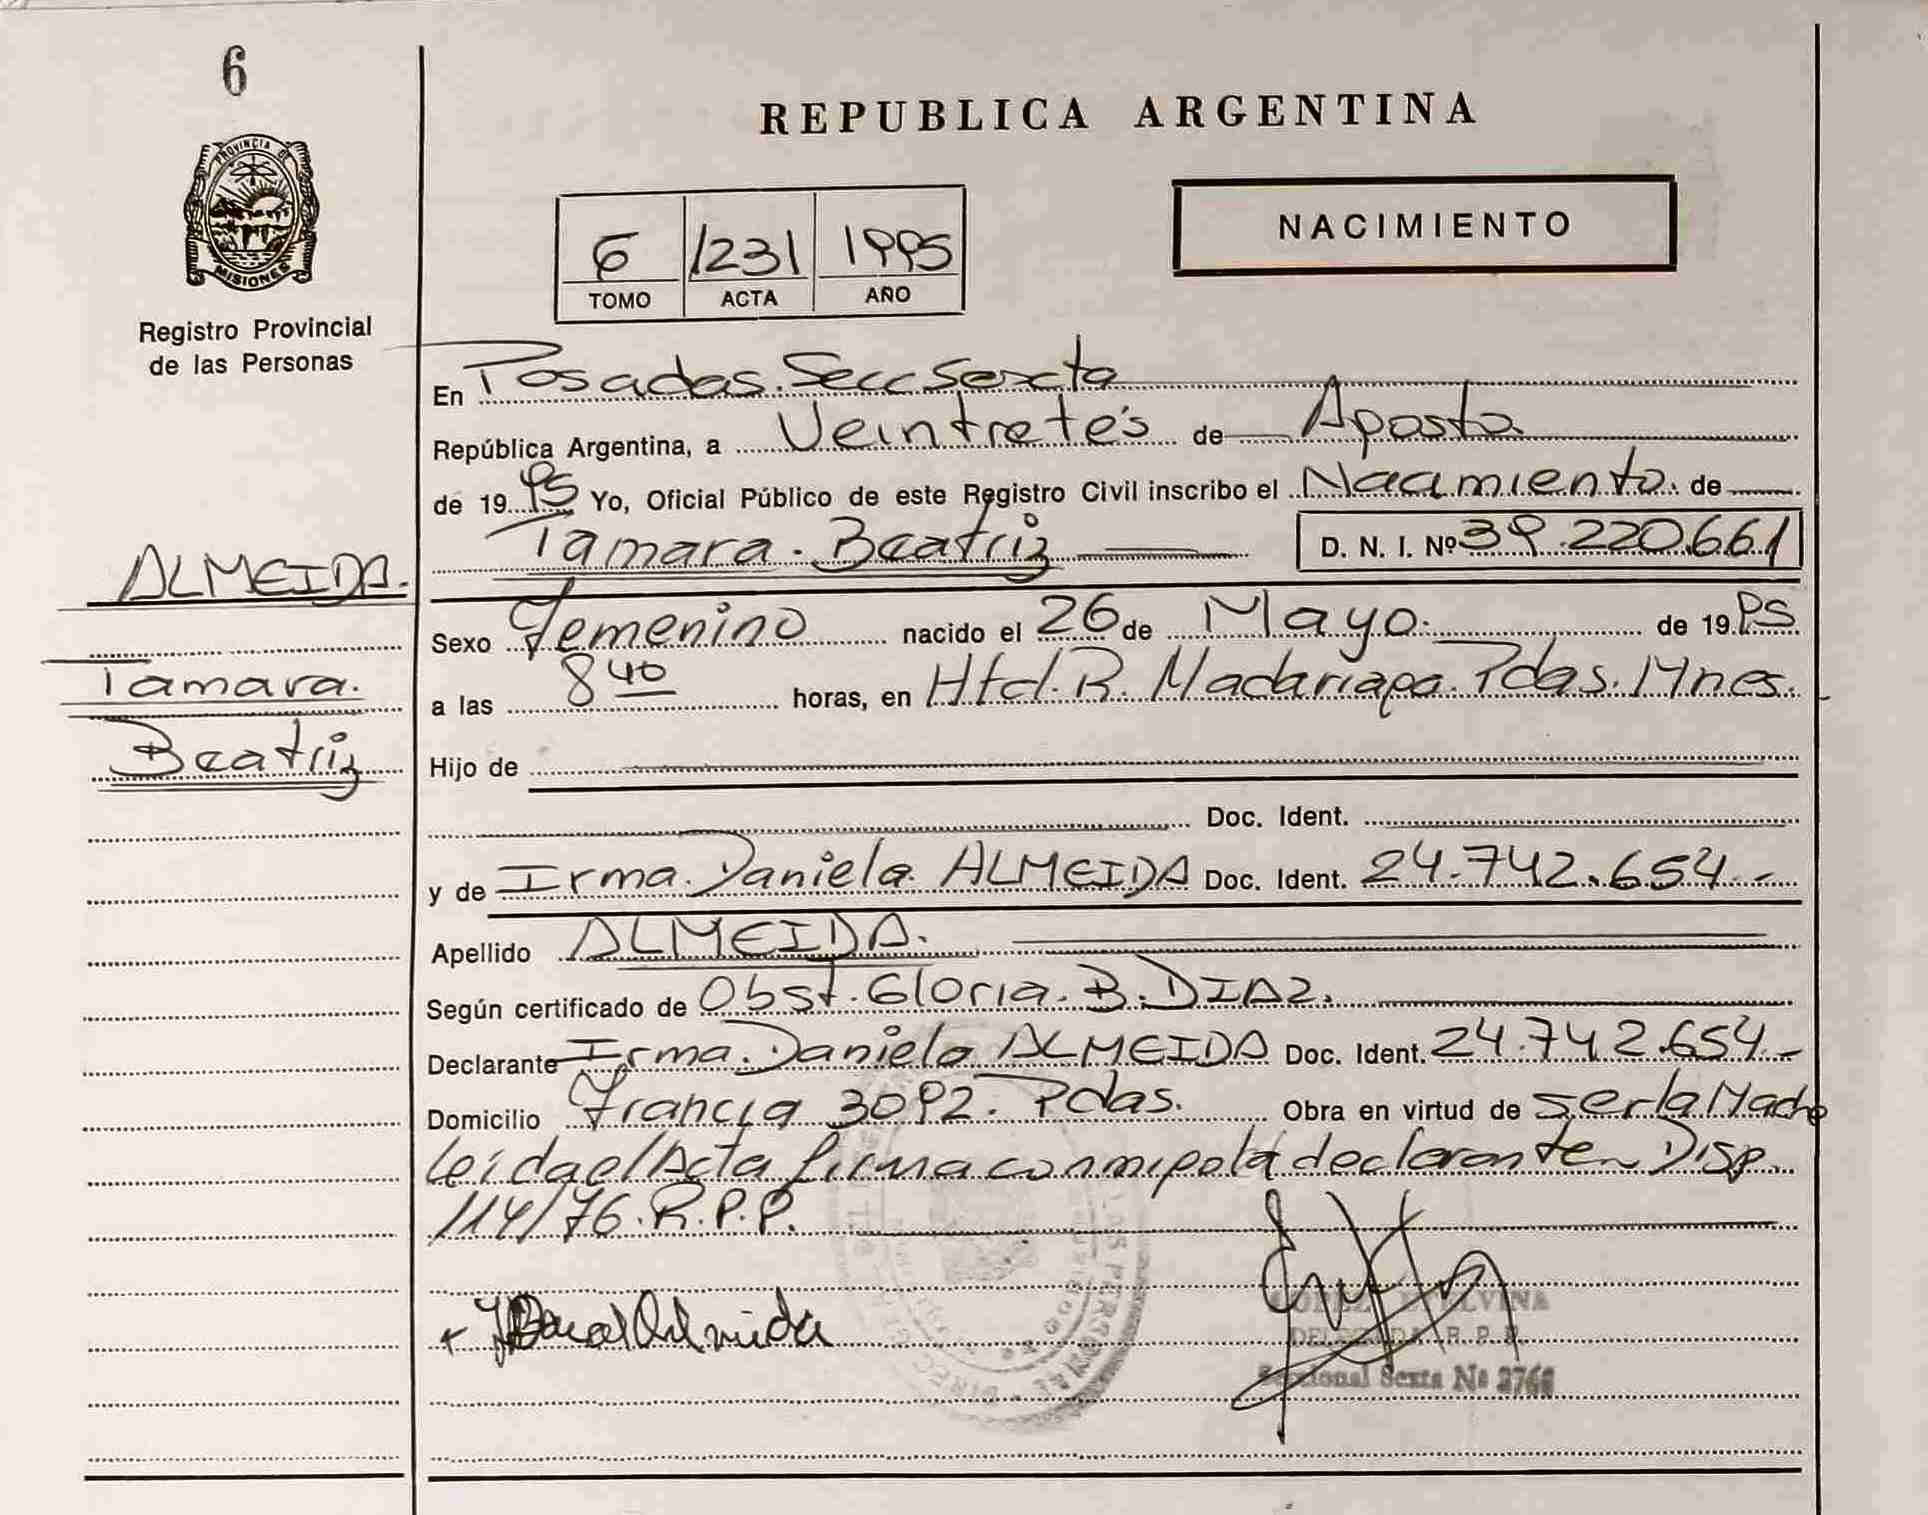 6
REPUBLICA ARGENTINA
PROVINCIA DE
MISIONES
Registro Provincial
de las Personas
NACIMIENTO
6 1231 1995
TOMO ACTA AÑO
En Posadas. Secc Sexta
República Argentina, a Veintretés de Agosto
de 1995 Yo, Oficial Público de este Registro Civil inscribo el Nacimiento. de
Tamara. Beatriz D. N. I. Nº 39.220.661
ALMEIDA.
Tamara.
Beatriz
Sexo Femenino nacido el 26 de Mayo. de 1995
a las 8 40 horas, en Htal. R. Madariaga. Pdas. Mnes.
Hijo de
Doc. Ident.
y de Irma. Daniela. ALMEIDA Doc. Ident. 24.742.654.-
Apellido ALMEIDA.
Según certificado de Obst. Gloria. B. DIAZ.
Declarante Irma. Daniela ALMEIDA Doc. Ident. 24.742.654.-
Domicilio Francia 3092. Pdas. Obra en virtud de ser la Madre
leida el Acta firma conmigo la declarante Disp.
114/76. R.P.P.
Almeida
LOPEZ ETELVINA
DELEGADA R. P. P.
Seccional Sexta Nº 2768